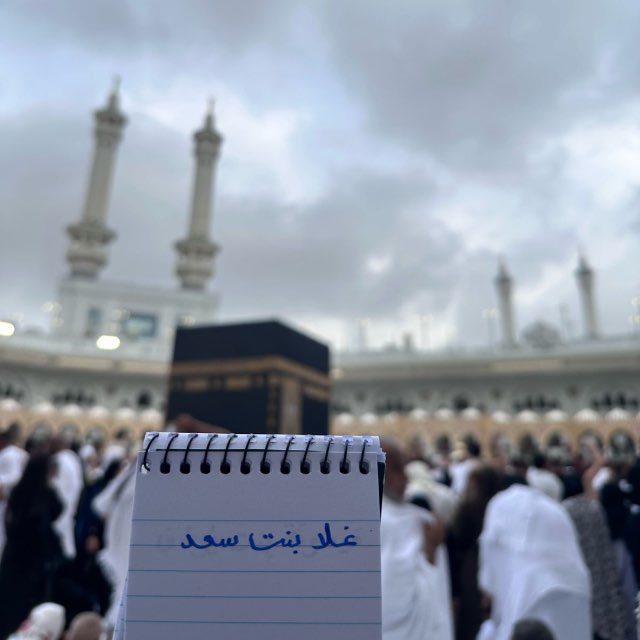 غلا بنت سعد